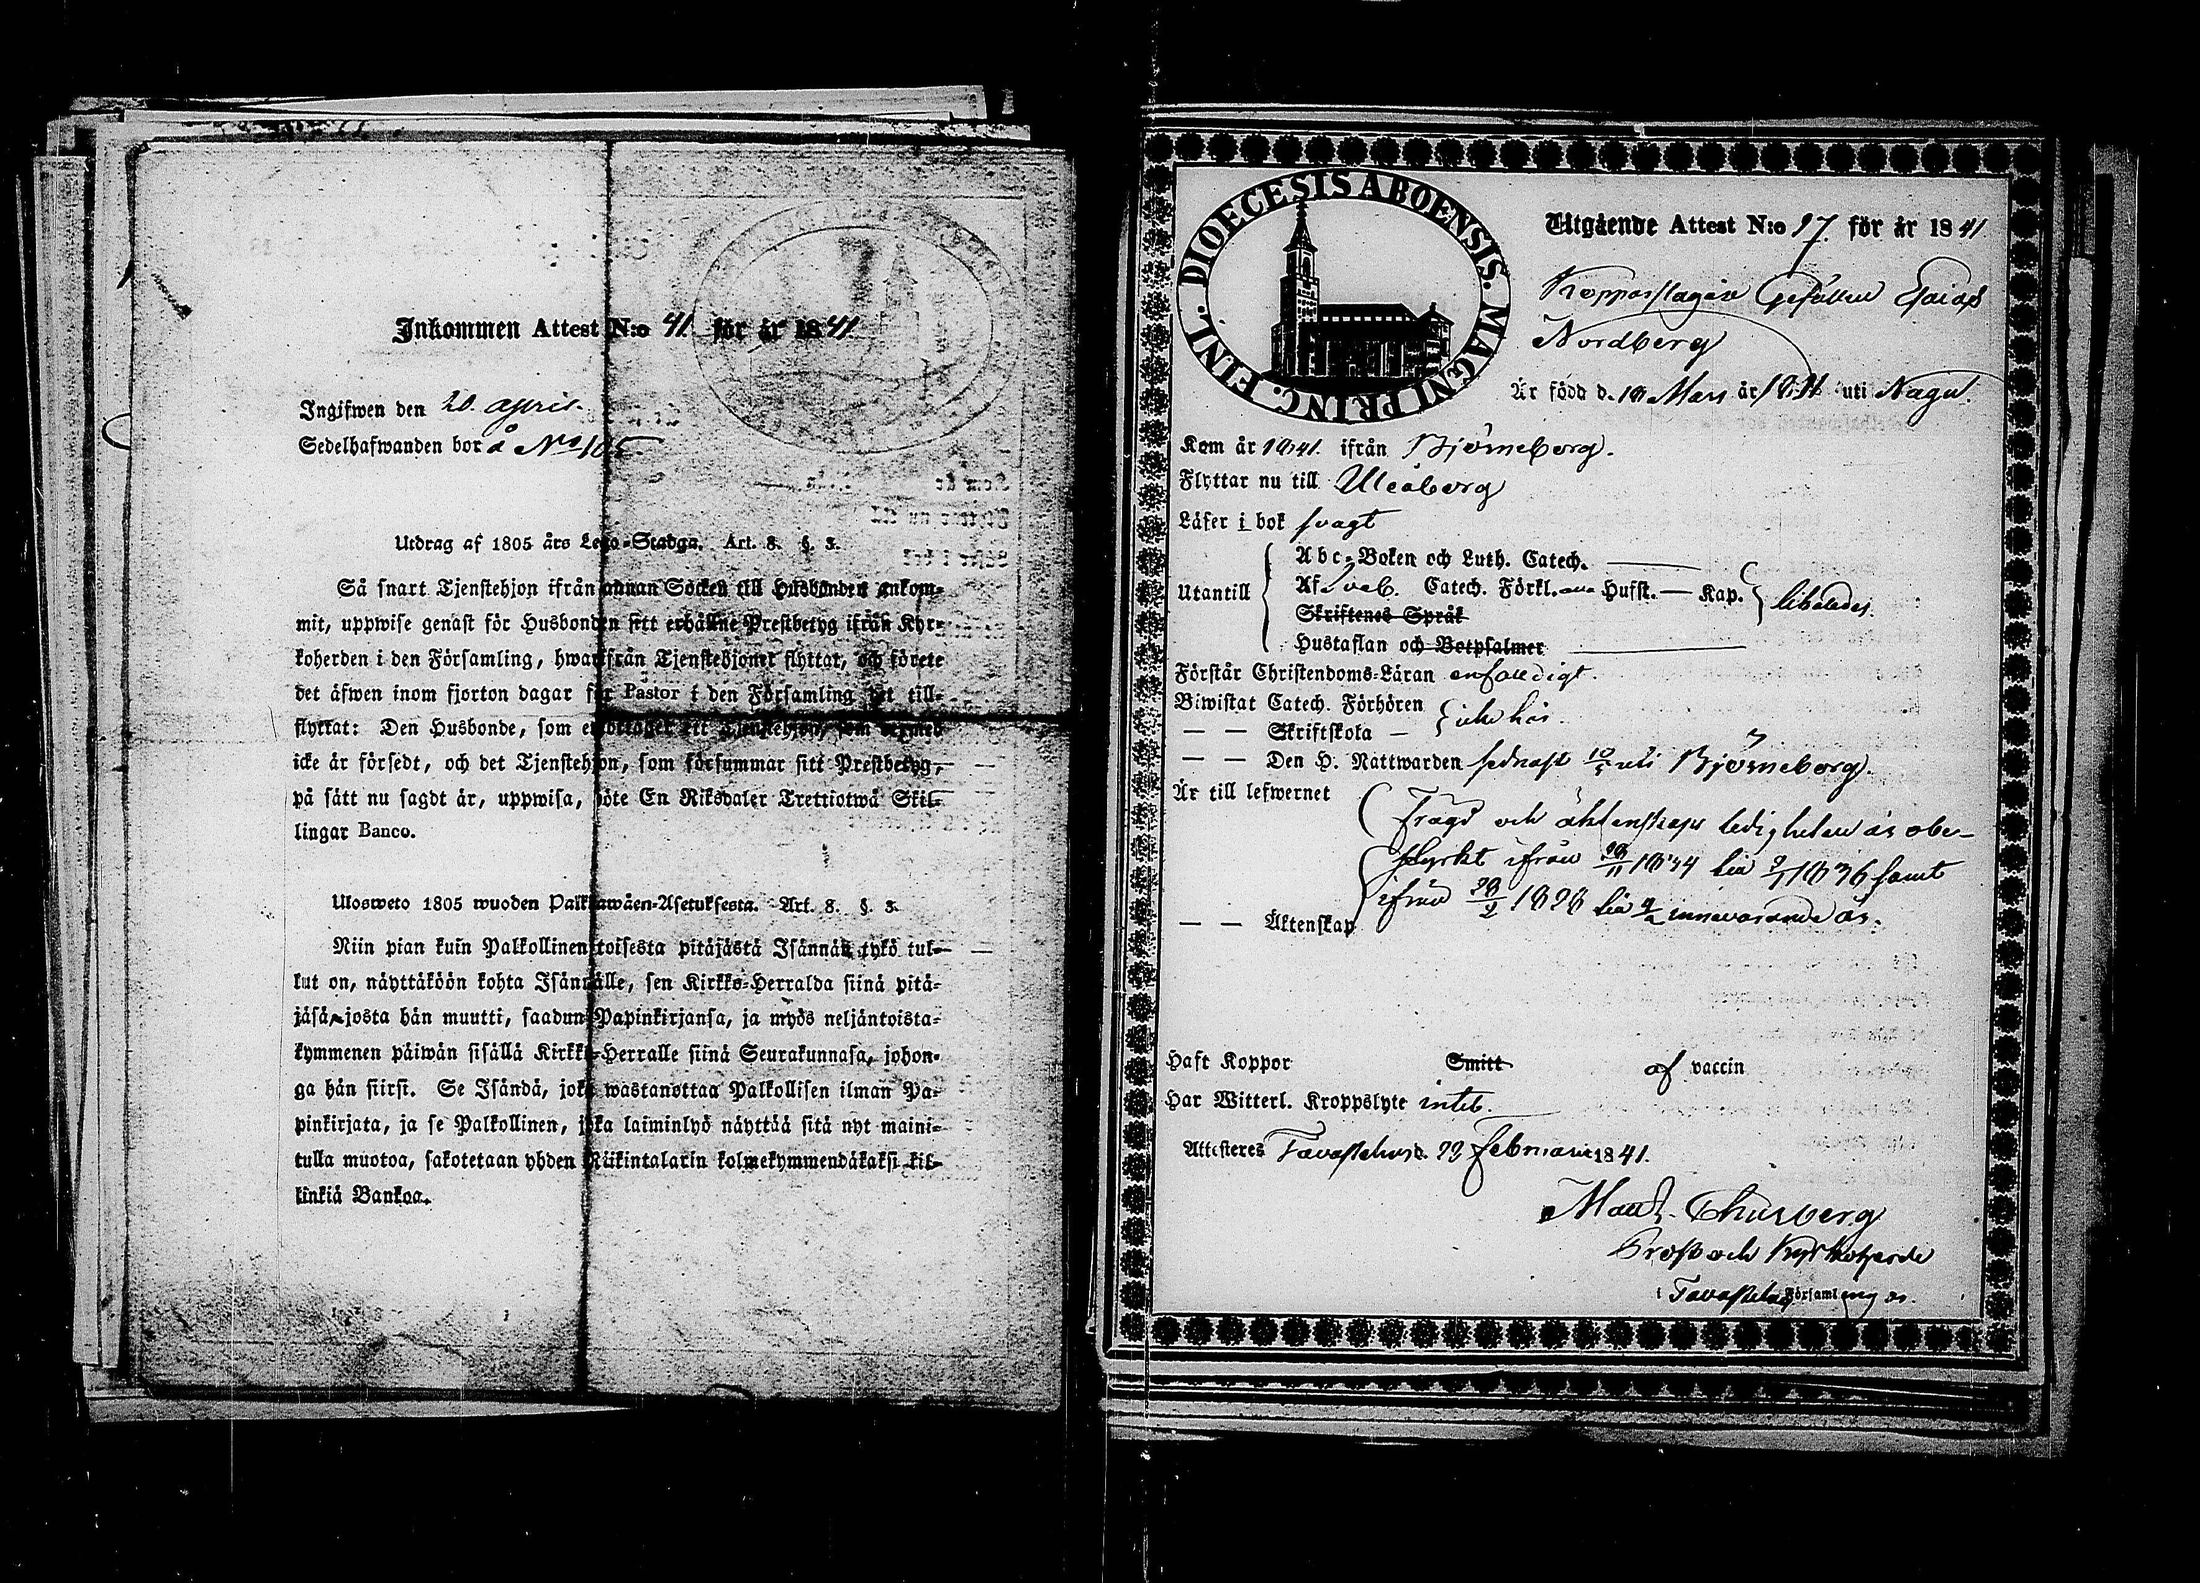 Inkommen Attest N:o 41. för år 1841.
Ingifwen den 20. april.
Sedelhafwanden bor å No 105
Utdrag af 1805 års Lego-Stadga. Art. 8. §. 3.
Så snart Tjenstehjon ifrån annan Socken till Husbonden ankom-
mit, uppwise genast för Husbonden sitt erhållne Prestbetyg ifrån Kyr-
koherden i den Församling, hwarifrån Tjenstehjonet flyttat, och förete
det äfwen inom fjorton dagar för Pastor i den Församling det till-
flyttat: Den Husbonde, som emottager ett Tjenstehjon, som dermed
icke är försedt, och det Tjenstehjon, som försummar sitt Prestbetyg,
på sätt nu sagdt är, uppwisa, böte En Riksdaler Trettiotwå Skil-
lingar Banco.
Ulosweto 1805 wuoden Palkkawäen-Asetuksesta. Art. 8. §. 3.
Niin pian kuin Palkollinen toisesta pitäjästä Isännän tykö tul-
lut on, näyttäköön kohta Isännälle, sen Kirkko-Herralda siinä pitä-
jäsä, josta hän muutti, saadun Papinkirjansa, ja myös neljäntoista-
kymmenen päiwän sisällä Kirkko-Herralle siinä Seurakunnasa, johon-
ga hän siirsi. Se Isändä, joka wastanottaa Palkollisen ilman Pa-
pinkirjata, ja se Palkollinen, joka laiminlyö näyttää sitä nyt maini-
tulla muotoa, sakotetaan yhden Riikintalarin kolmekymmendäkaksi kil-
linkiä Bankoa.
DIOECESIS ABOENSIS. MAGNI PRINC. FINL.
Utgående Attest N:o 27. för år 1841
Kopparslagare Gesällen
Nordberg
Är född d. 18 Mars år uti Nagu.
Kom år 1841. ifrån Björneborg.
Flyttar nu till Uleåborg
Läser i bok svagt
Utantill
Abc-Boken och Luth. Catech.
Af Catech. Förkl. Husst. — Kap.
Skriftenes Språk
Hustaflan och Botpsalmer
Förstår Christendoms-Läran enfaldigt.
Biwistat Catech. Förhören
— — Skriftskola — icke här.
— — Den H. Nattwarden sednast uti Björneborg.
Är till lefwernet
Frägd och äktenskaps ledigheten är obe-
styrkt ifrån till samt
ifrån till innevarande år.
— — Äktenskap
Haft Koppor Smitt af vaccin
Har Witterl. Kroppslyte intet.
Attesteres Tavastehus d. 22 Februarii 1841.
Prost och Kyrkoherde
i Tavastehus Församling